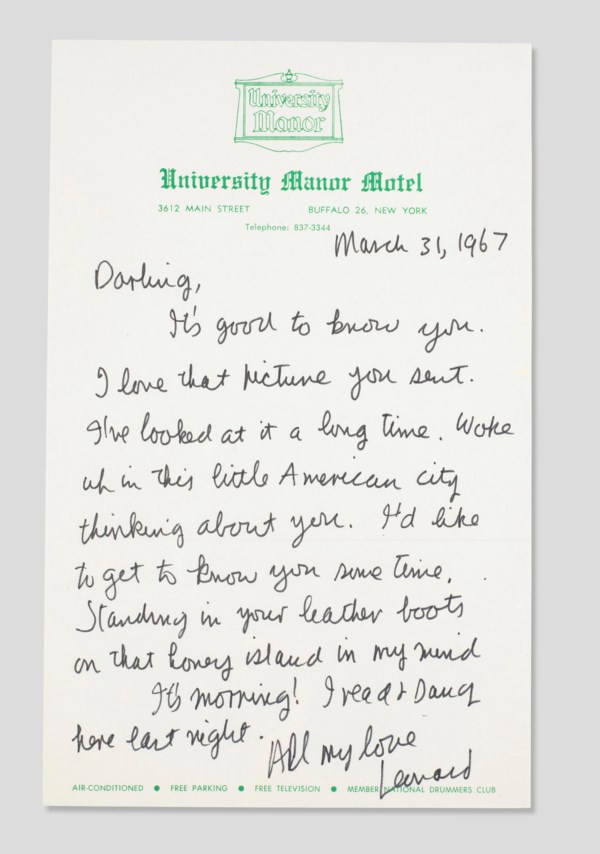 University
Manor
University Manor Motel
3612 MAIN STREET BUFFALO 26, NEW YORK
Telephone: 837-3344
March 31, 1967
Darling,
It's good to know you.
I love that picture you sent.
I've looked at it a long time. Woke
up in this little American city
thinking about you. I'd like
to get to know you some time,
Standing in your leather boots
on that honey island in my mind
It's morning! I read & sang
here last night.
All my love
Leonard
AIR-CONDITIONED ● FREE PARKING ● FREE TELEVISION ● MEMBER NATIONAL DRUMMERS CLUB